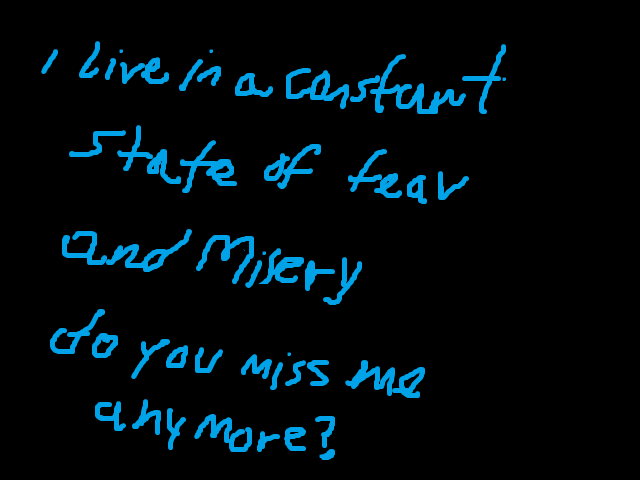 I live in a constant
state of fear
and Misery
do you miss me
anymore?